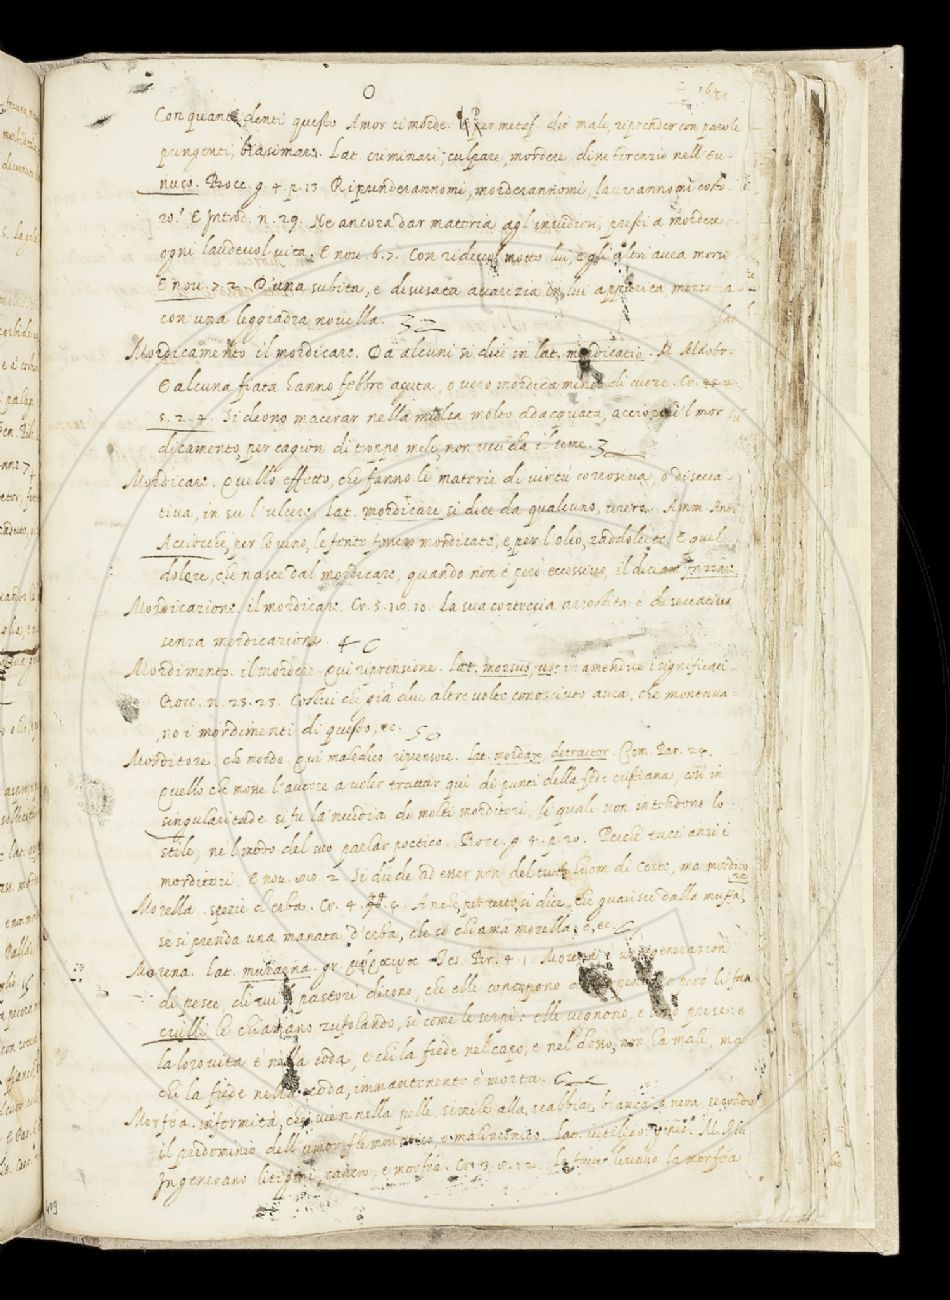 O
Con quanti denti questo Amor ti morde. per metaf. dir male, riprender con parole
pungenti, biasimare. Lat. criminari, culpare, mordere disse Terenzio nell'Eu-
nuco. Bocc. g. 4. p. 13. Riprenderannomi, morderannomi, lacererannomi costo-
ro. E Introd. n. 29. Ne ancora dar materia agl'invidiosi, presti a mordere
ogni laudevol vita. E nov. 6. 7. Con ridevol motto lui, e gli altri avea morsi
E nov. 7. 2. D'una subita, e disusata avarizia in lui apparita morse
con una leggiadra novella. 32
Mordicamento il mordicare. Da alcuni si dice in lat. mordicatio. M. Aldobr.
E alcuna fiata hanno febbre aguta, o vero mordicamento di cuore. Cr.
5. 2. 4. Si deono macerar nella mulsa molto adacquata, acciocchè il mor
dicamento, per cagion di troppo mele, non uccida il seme. 3
Mordicare. Quello effetto, che fanno le materie di virtù corrosiva, o disecca-
tiva, in su l'ulcere. Lat. mordicare si dice da qualcuno, Amm. Ant.
Acciocchè, per lo vino, le ferite fussero mordicate, e per l'olio, raddolcite. E quel
dolore, che nasce dal mordicare, quando non è però eccessivo, il diciam frizzare.
Mordicazione, il mordicare. Cr. 5. 10. 10. La sua corteccia arrostita è diseccativa
senza mordicazione. 40
Mordimento. il mordere. Qui riprensione. Lat. morsus, us. in amendue i significati
Bocc. n. 23. 23. Costui che già due altre volte conosciuto avea, che montava-
no i mordimenti di questo, ec. 50
Morditore. che morde. Qui maledico, riprensore. Lat. mordax detractor. Com. Par. 24.
Quello che mosse l'autore a voler trattar qui di punti della fede cristiana, così in
singularitade si fu la nvidia di molti morditori, li quali non intendono lo
stile, ne 'l modo del suo parlar poetico. Bocc. g. 4. p. 20. Perchè tacciansi i
morditori. E nov. 2. Si diede ad esser non del tutto huom di Corte, ma mordito
re
Morella. spezie d'erba. Cr. 4. si dice, che guarisce dalla muffa,
se si prenda una manata d'erba, che si chiama morella, e, ec.
Morena. Lat. muraena. gr. Tes. Br. 4. 1. Morena è una generazion
di pesce, di cui i pastori dicono, che elle concepono e però li fan
ciulli le chiamano zufolando, sì come le serpi: elle vegnono, e sono prese: e
la loro vita è nella coda, e chi la fiede nel capo, e nel dosso, non ha male, ma
chi la fiede nella coda, immantenente è morta.
Morféa. infermità, che vien nella pelle, simile alla scabbia, bianca, o nera, secondo
il predominio dell'umor flemmatico, o malinconico. Lat. vitiligo,
Ingenerano litigini, cancro, e morféa. Cr. 3. 8. 12. levano la morféa